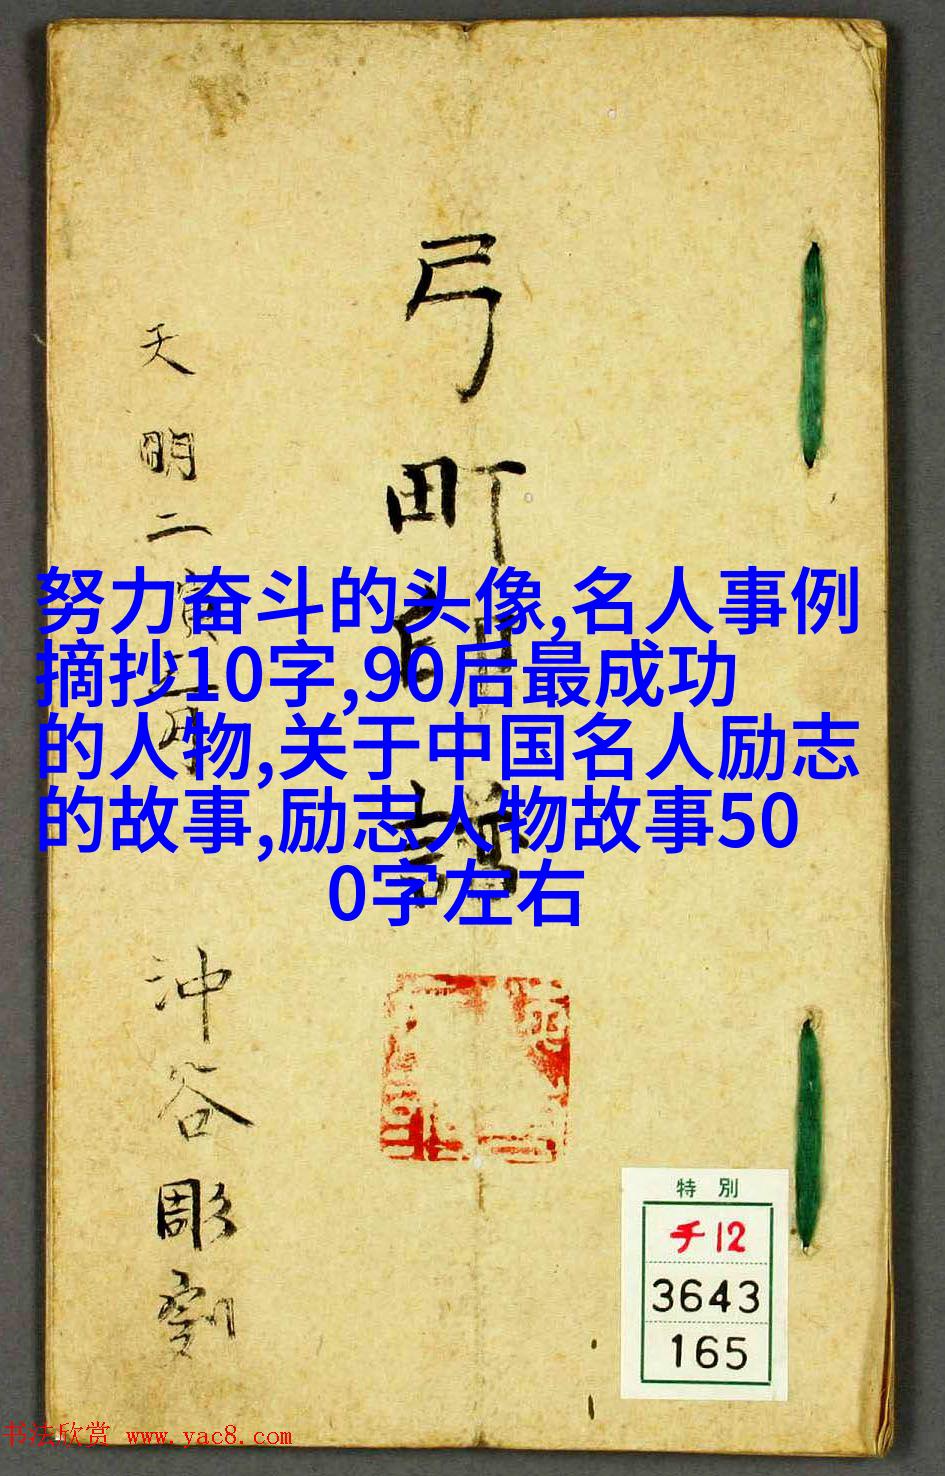 弓町印譜
天明二寅五月
沖谷彫刻
努力奋斗的头像,名人事例
摘抄10字,90后最成功
的人物,关于中国名人励志
的故事,励志人物故事50
0字左右
特別
チ12
3643
165
书法欣赏 www.yac8.com